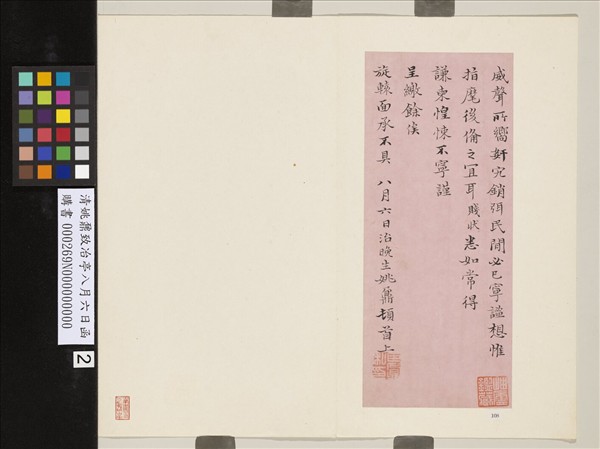 威聲所嚮奸宄銷弭民間必已寧謐想惟
指麾後備之宜耳賤狀悉如常得
謙柬惶悚不寧謹
呈繳餘俟
旋轅面承不具 八月六日治晚生姚鼐頓首上
106
清姚鼐致冶亭八月六日函
購書 000269N000000000
2